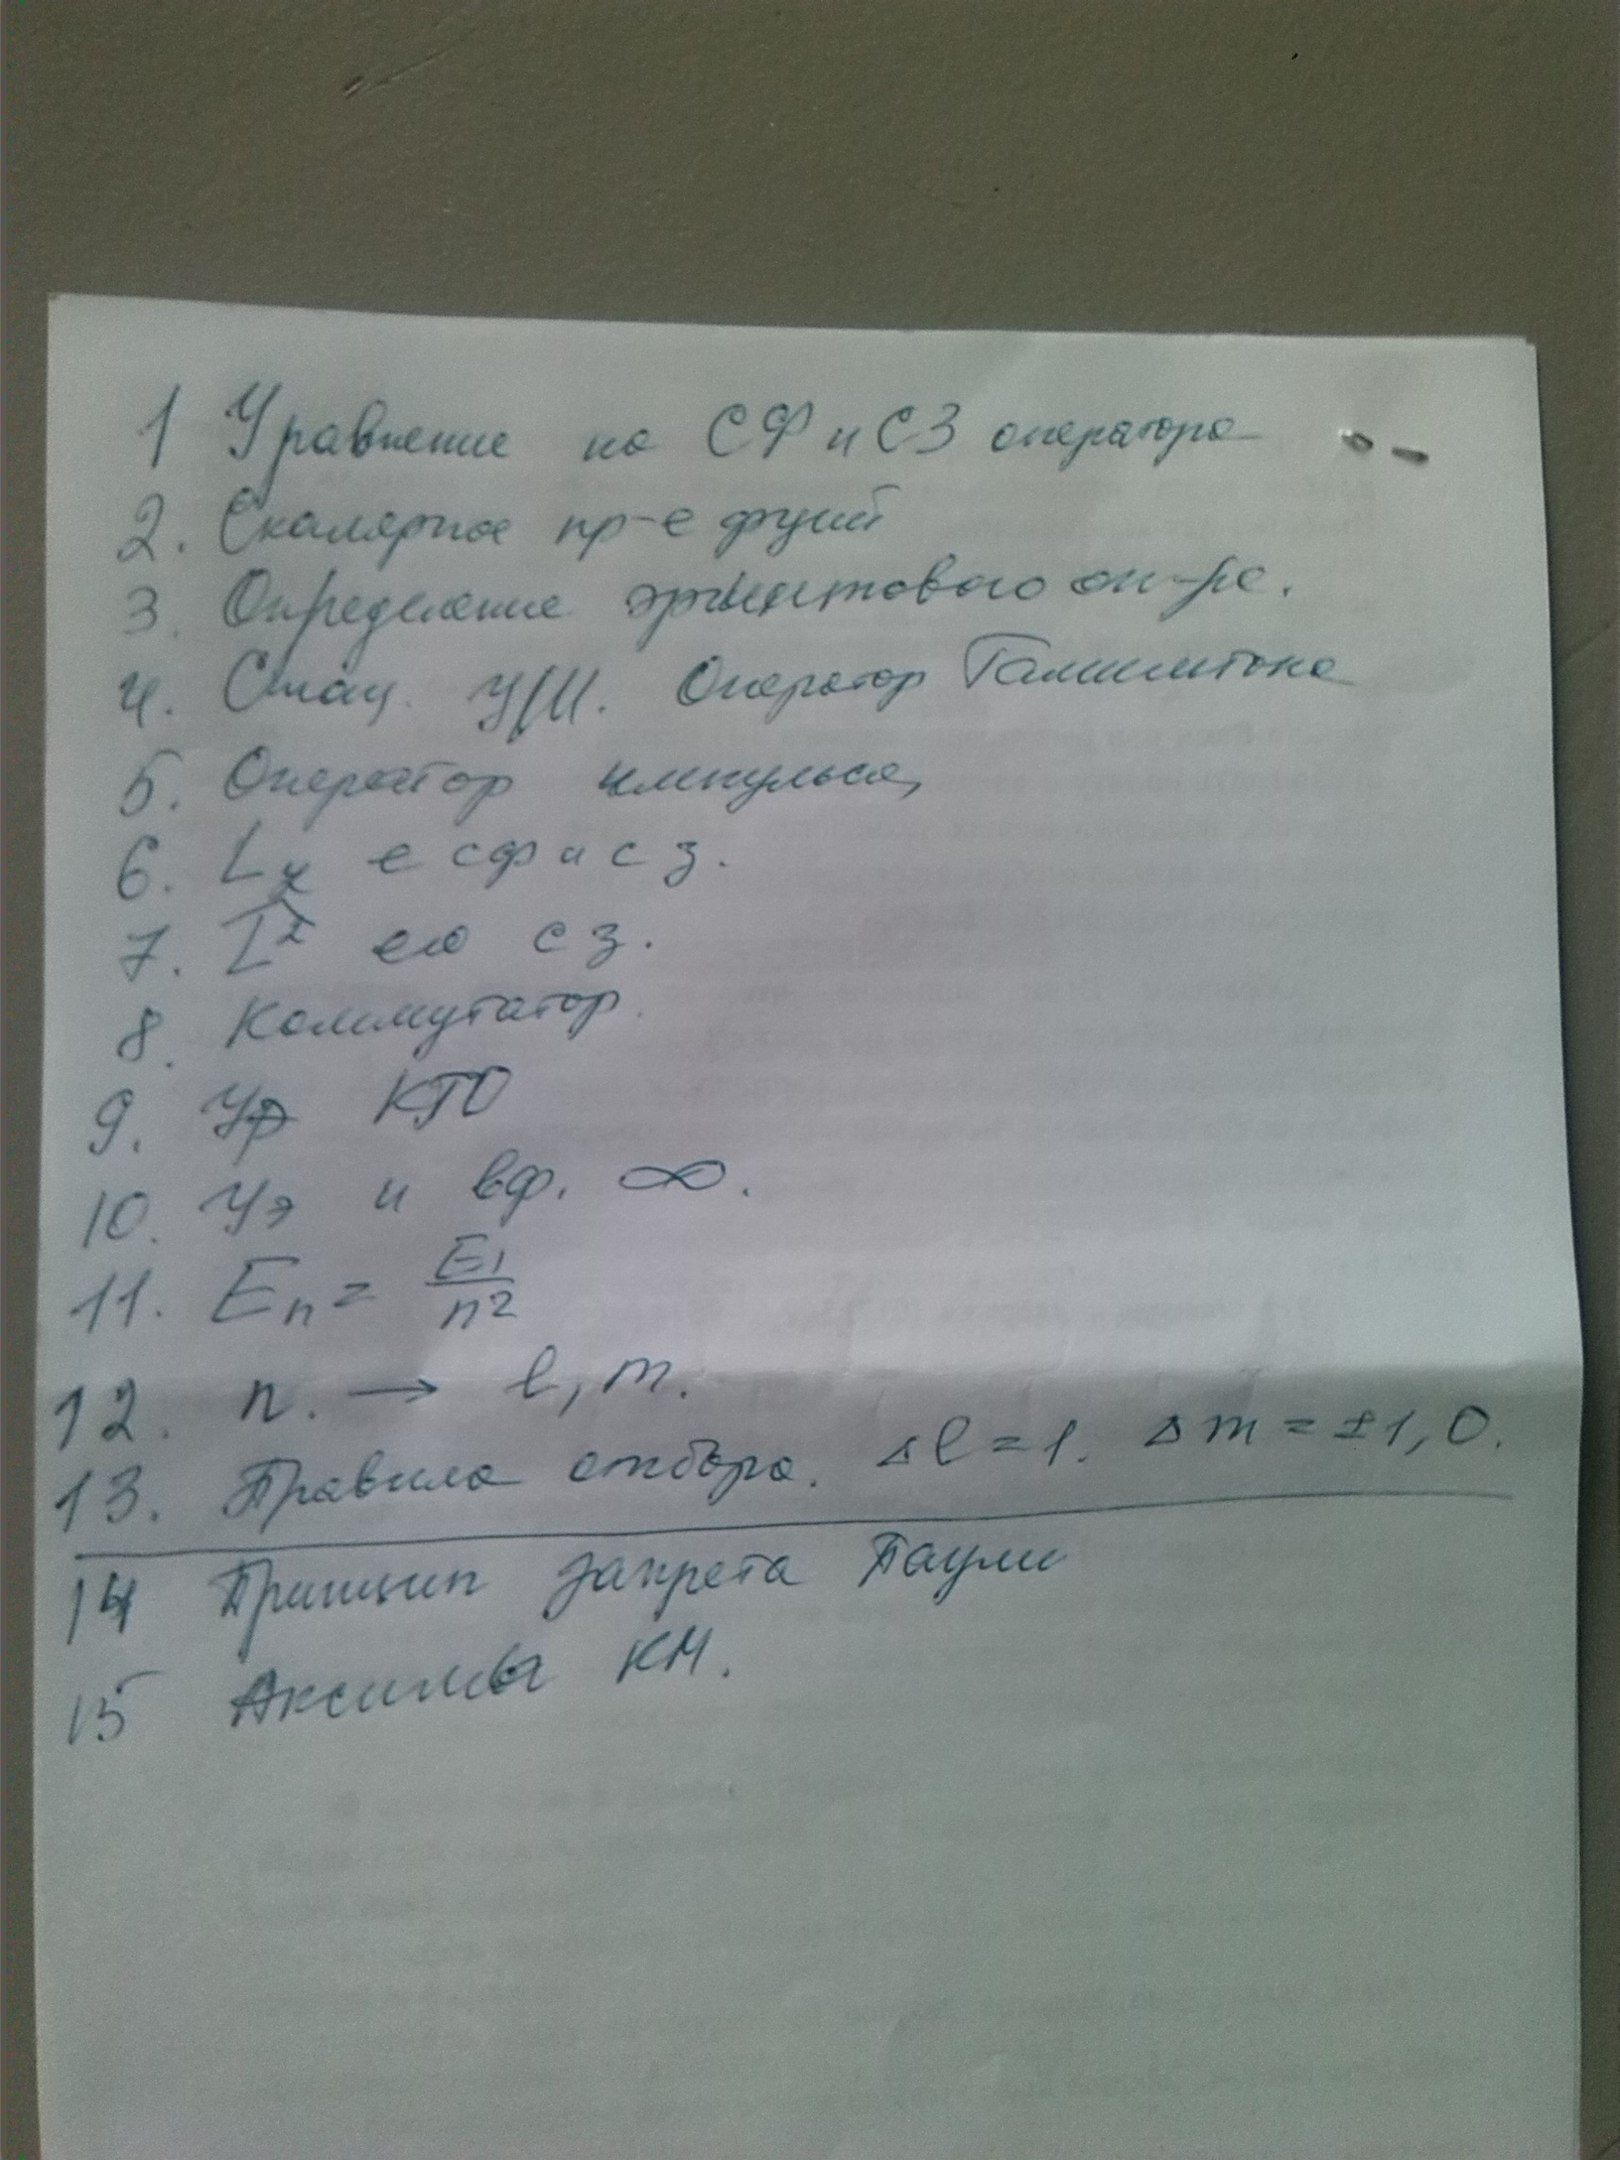 1 Уравнение на СФ и СЗ оператора
2. Скалярное пр-е функций
3. Определение эрмитового оп-ра.
4. Стац. У/Ш. Оператор Гамильтона
5. Оператор импульса,
6. Lz е сф и с з.
7. L² его с з.
8. Коммутатор.
9. Уэ КГО
10. Уэ и вф. ∞.
11. En = E1/n2
12. n. → l, m.
13. Правила отбора. Δl = 1. Δm = ±1, 0.
14 Принцип запрета Паули
15 Аксиомы КМ.